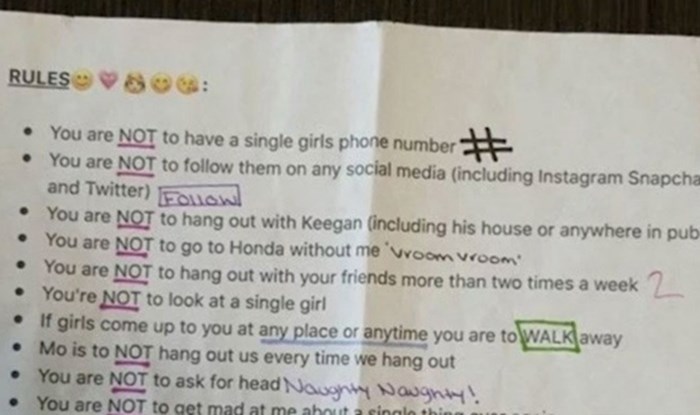 RULES😊💗👸😋😘:
• You are NOT to have a single girls phone number #
• You are NOT to follow them on any social media (including Instagram Snapcha
and Twitter) Follow
• You are NOT to hang out with Keegan (including his house or anywhere in pub
• You are NOT to go to Honda without me 'vroom vroom'
• You are NOT to hang out with your friends more than two times a week 2
• You're NOT to look at a single girl
• If girls come up to you at any place or anytime you are to WALK away
• Mo is to NOT hang out us every time we hang out
• You are NOT to ask for head Naughty Naughty!
• You are NOT to get mad at me about a single thing